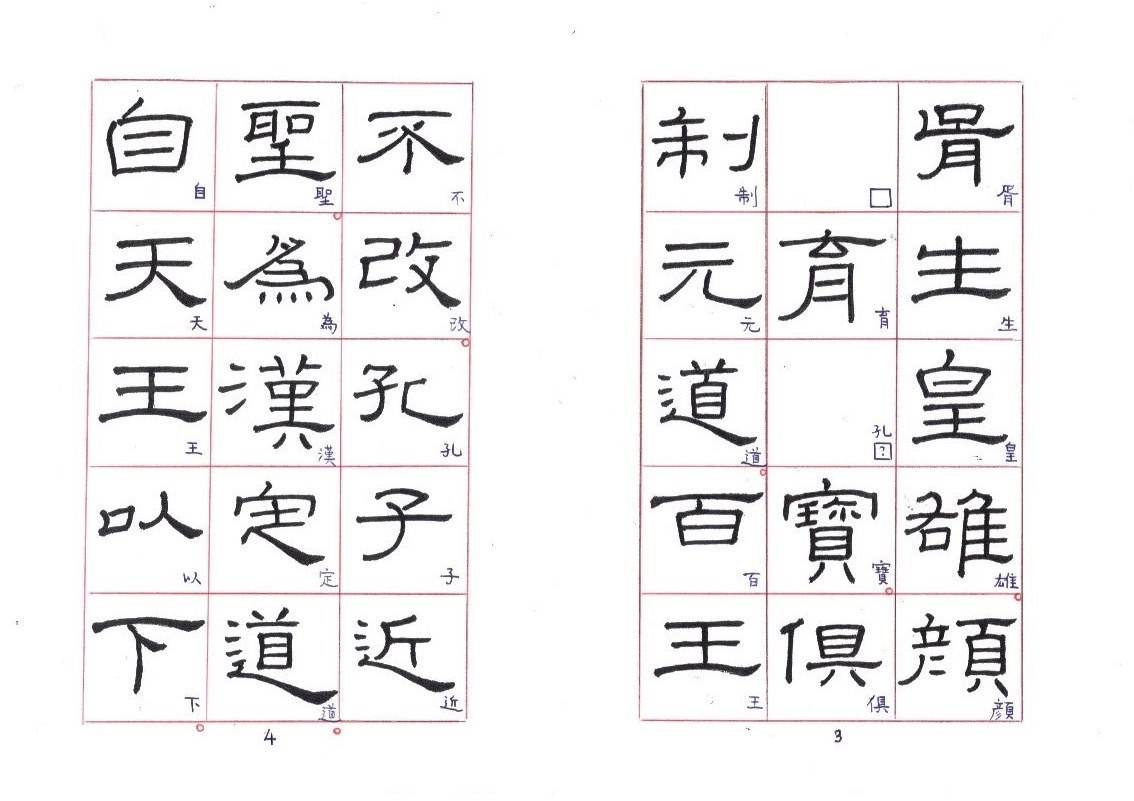 胥生皇雄顔
胥生皇雄顔
育寶俱
□育孔?寶俱
制元道百王
制元道百王
3
不改孔子近
不改孔子近
聖為漢定道
聖為漢定道
自天王以下
自天王以下
4